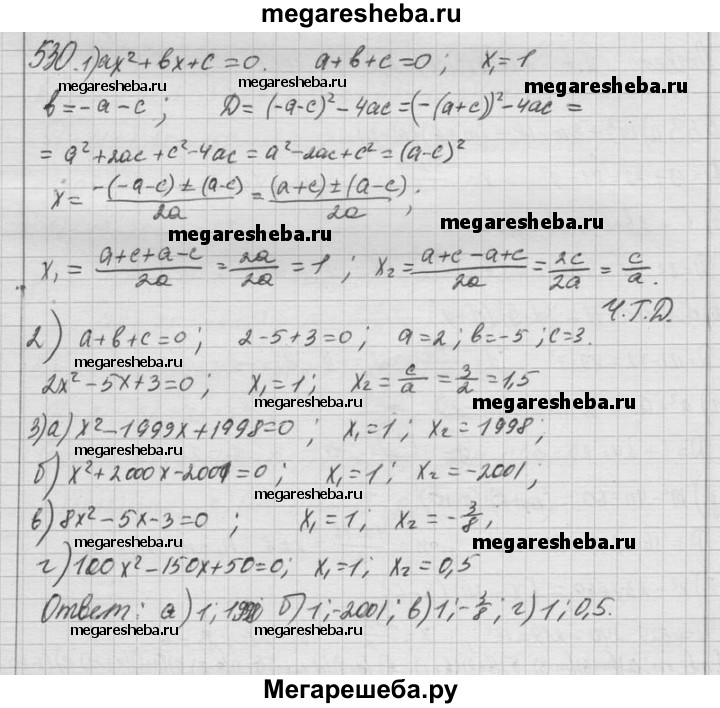 megaresheba.ru
530. 1) ax² + bx + c = 0. a + b + c = 0; x₁ = 1
b = -a - c; D = (-a-c)² - 4ac = (-(a+c))² - 4ac =
= a² + 2ac + c² - 4ac = a² - 2ac + c² = (a-c)²
x = (-(-a-c) ± (a-c))/2a = ((a+c) ± (a-c))/2a;
megaresheba.ru
megaresheba.ru
x₁ = (a+c+a-c)/2a = 2a/2a = 1; x₂ = (a+c-a+c)/2a = 2c/2a = c/a.
Ч.Т.Д.
2) a + b + c = 0; 2 - 5 + 3 = 0; a = 2; b = -5; c = 3.
megaresheba.ru
2x² - 5x + 3 = 0; x₁ = 1; x₂ = c/a = 3/2 = 1,5
megaresheba.ru
3) а) x² - 1999x + 1998 = 0; x₁ = 1; x₂ = 1998;
megaresheba.ru
б) x² + 2000x - 2001 = 0; x₁ = 1; x₂ = -2001;
megaresheba.ru
в) 8x² - 5x - 3 = 0; x₁ = 1; x₂ = -3/8;
megaresheba.ru
megaresheba.ru
г) 100x² - 150x + 50 = 0; x₁ = 1; x₂ = 0,5
Ответ: а) 1; б) 1; -2001; в) 1; -3/8; г) 1; 0,5.
megaresheba.ru
megaresheba.ru
Мегарешеба.ру